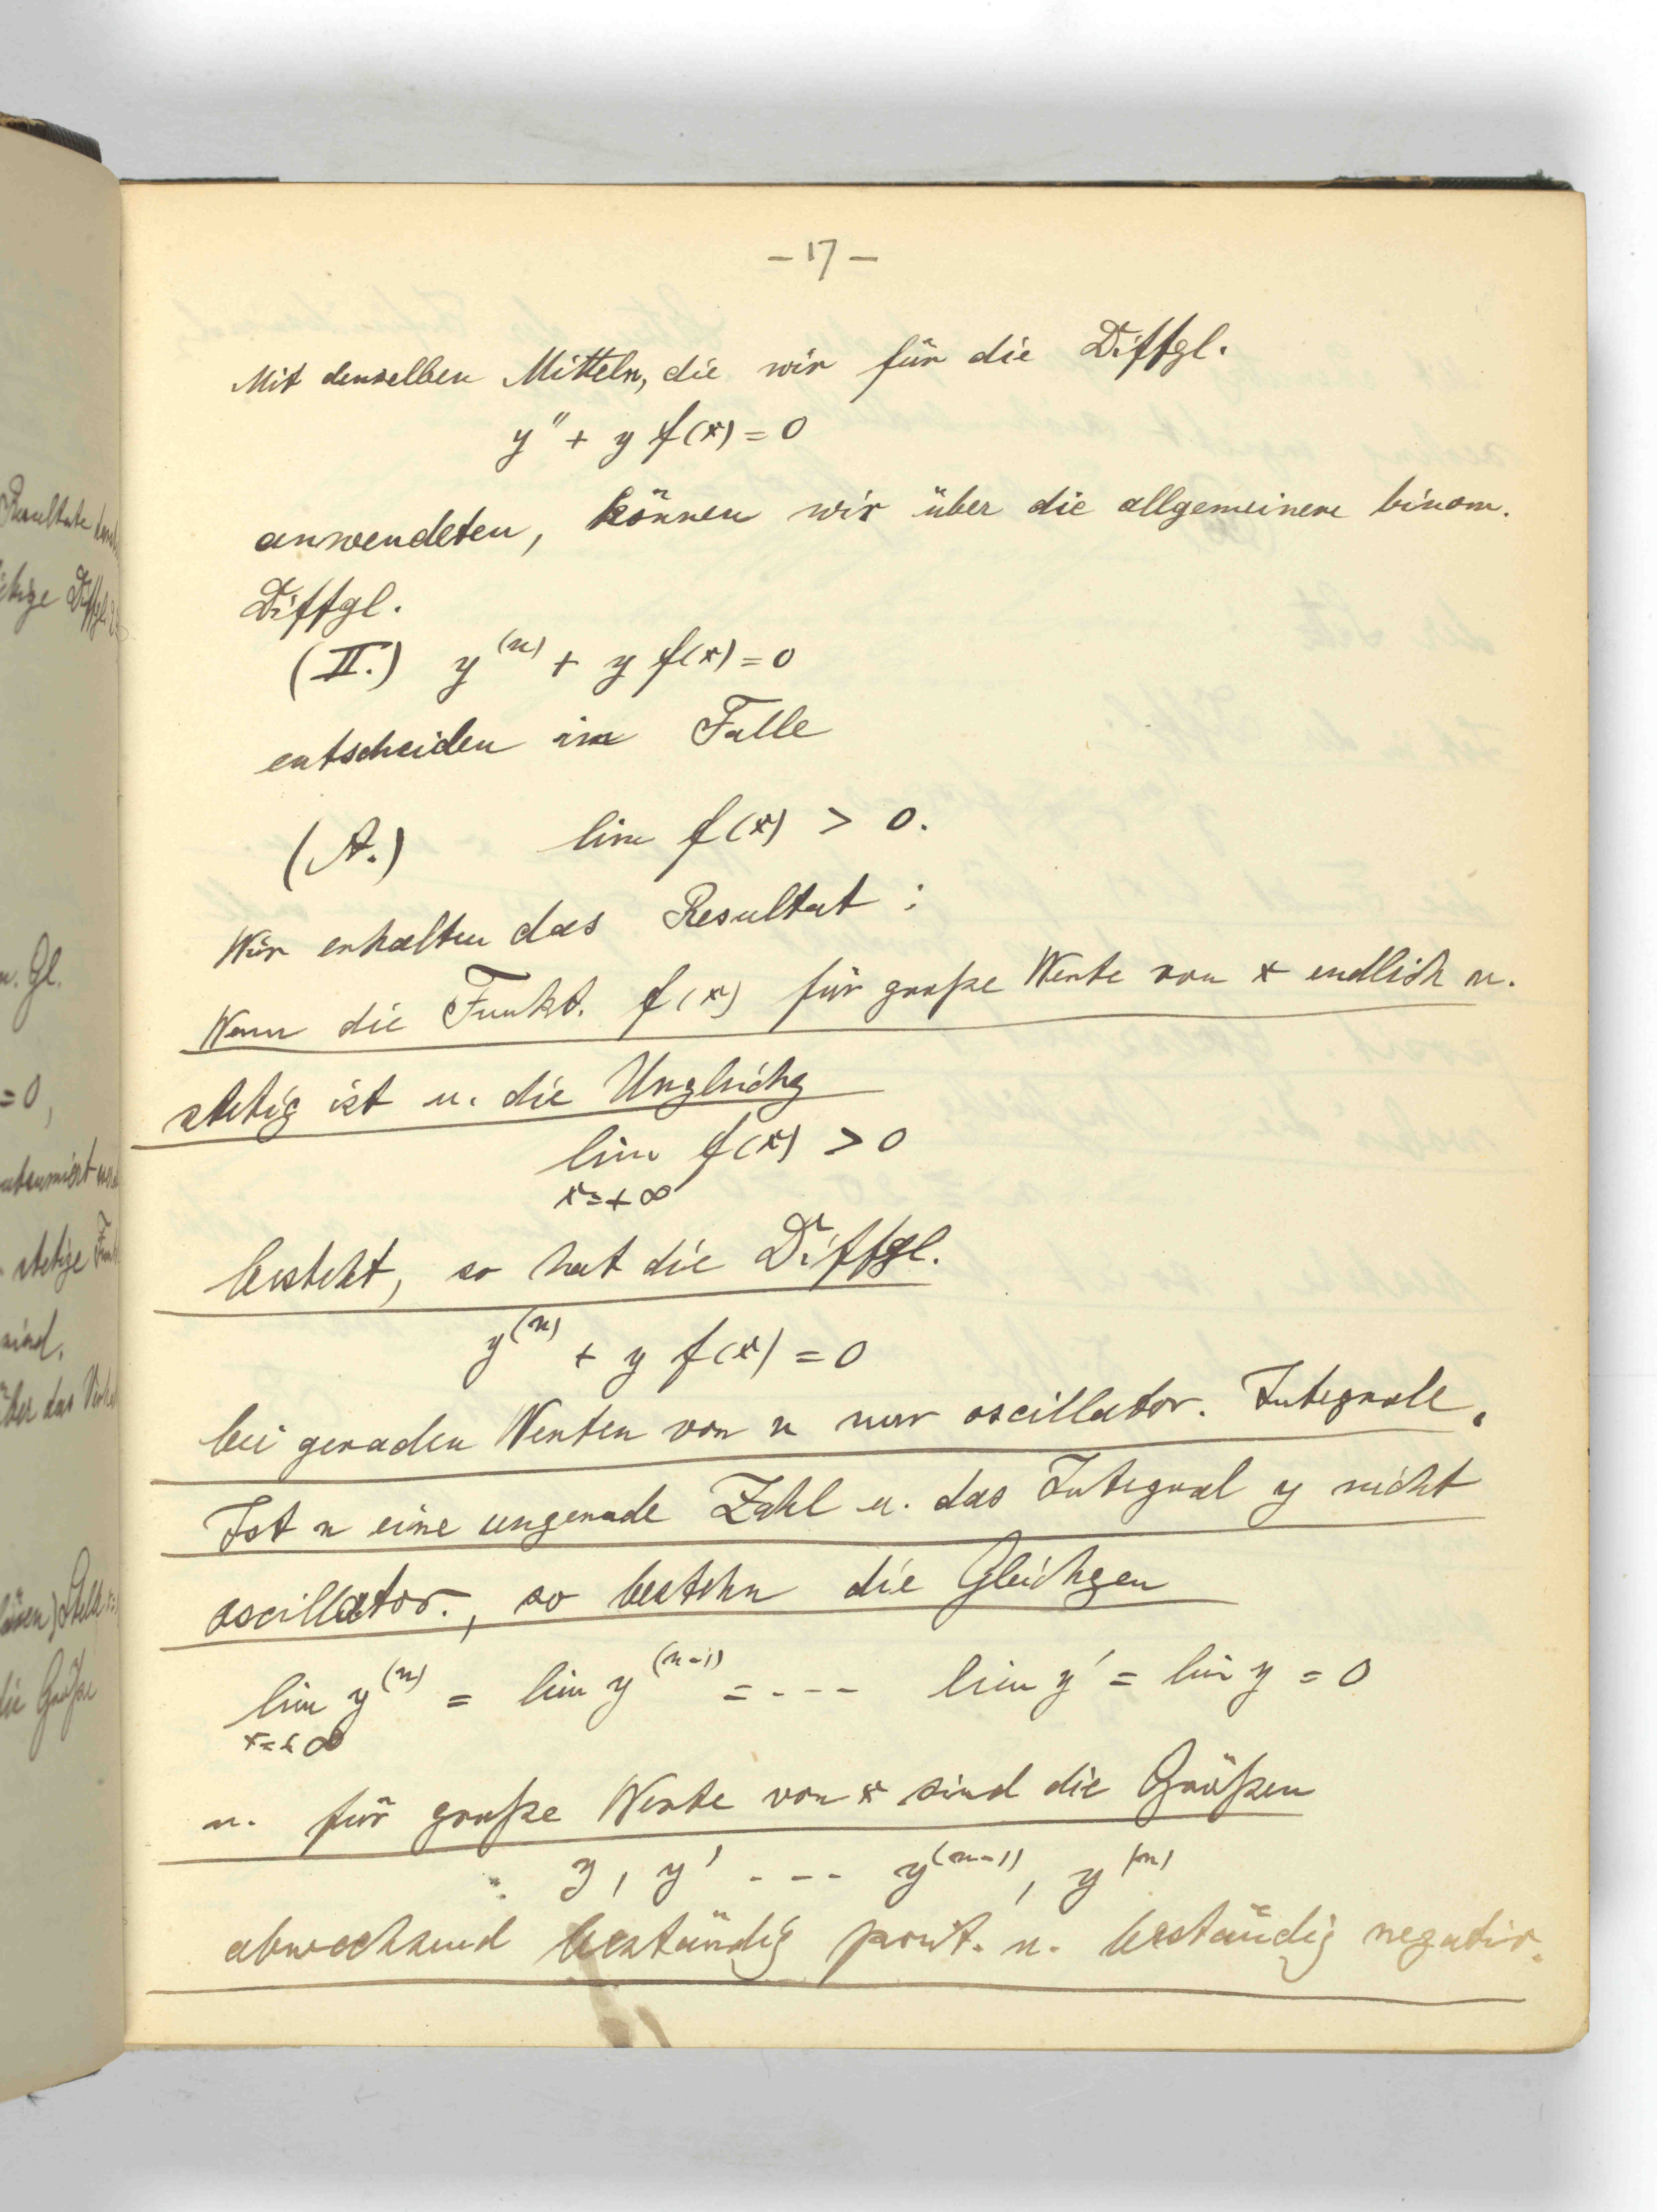 – 17 –
Mit denselben Mitteln, die wir für die Diffgl.
y'' + y f(x) = 0
anwendeten, können wir über die allgemeinere binom.
Diffgl.
(II.) y^(n) + y f(x) = 0
entscheiden im Falle
(A.) lim f(x) > 0.
Wir erhalten das Resultat:
Wenn die Funkt. f(x) für große Werte von x endlich u.
stetig ist u. die Unglichg
lim f(x) > 0
x=+∞
besteht, so hat die Diffgl.
y^(n) + y f(x) = 0
bei geraden Werten von n nur oscillator. Integrale.
Ist n eine ungerade Zahl u. das Integral y nicht
oscillator., so bestehn die Gleichgen
lim y^(n) = lim y^(n-1) = - - - lim y' = lim y = 0
x=+∞
u. für große Werte von x sind die Größen
y, y' - - - y^(n-1), y^(n)
abwechsend beständig posit. u. beständig negativ.